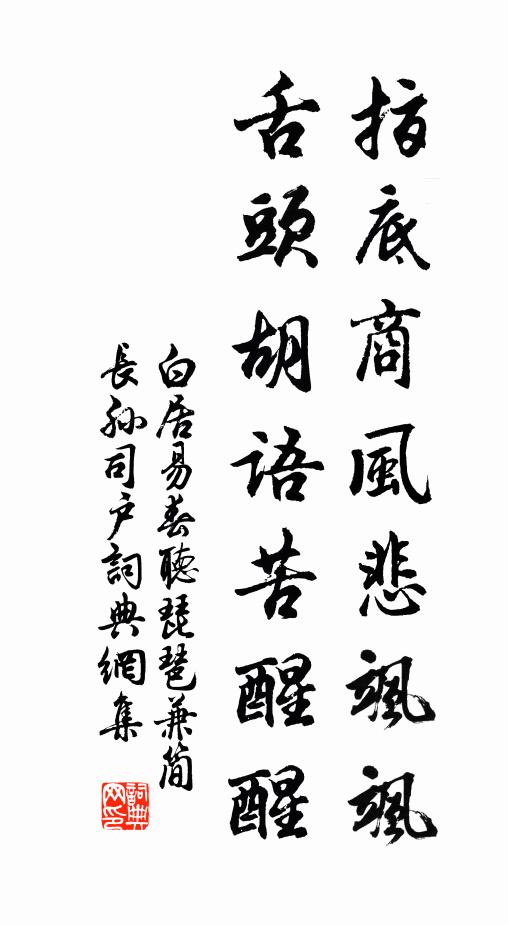 指底商風悲颯颯
舌頭胡語苦醒醒
白居易春聽琵琶兼簡
長孫司户詞典網集
詞典网印